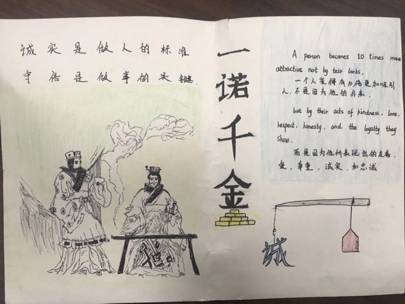 诚实是做人的标准
守信是做事的关键
一诺千金
A person becomes 10 times more
attractive not by their looks,
一个人变得更加吸引
人,不是因为他的
but by their acts of kindness, love,
respect, honesty, and the loyalty they
show.
而是因为他们表现出的友善,
爱,尊重,诚实,和忠诚
诚